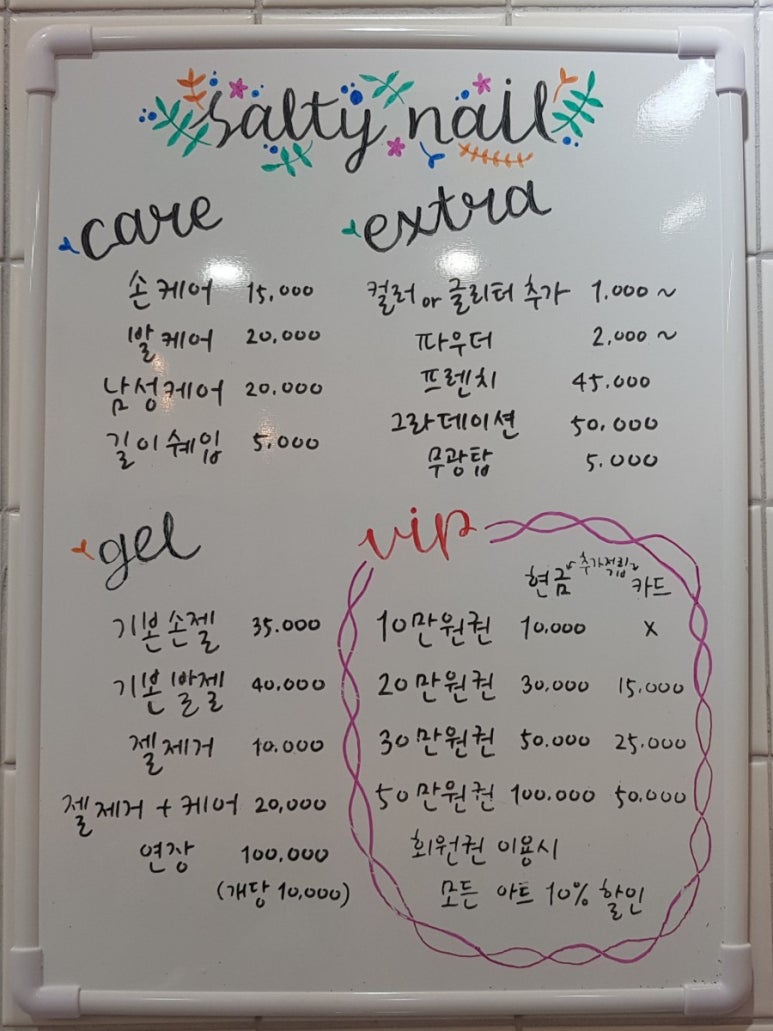 salty nail
care
손케어 15,000
발케어 20,000
남성케어 20,000
길이쉐입 5,000
extra
컬러 or 글리터 추가 1,000 ~
파우더 2,000 ~
프렌치 45,000
그라데이션 50,000
무광탑 5,000
gel
기본손젤 35,000
기본발젤 40,000
젤제거 10,000
젤제거 + 케어 20,000
연장 100,000
(개당 10,000)
vip
현금 추가적립 카드
10만원권 10,000 x
20만원권 30,000 15,000
30만원권 50,000 25,000
50만원권 100,000 50,000
회원권 이용시
모든 아트 10% 할인